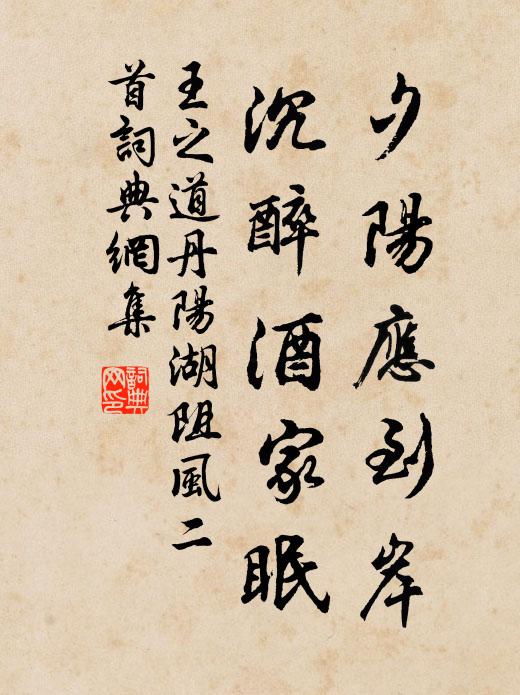 夕陽應到岸
沉醉酒家眠
王之道丹陽湖阻風二
首詞典網集
詞典
网印